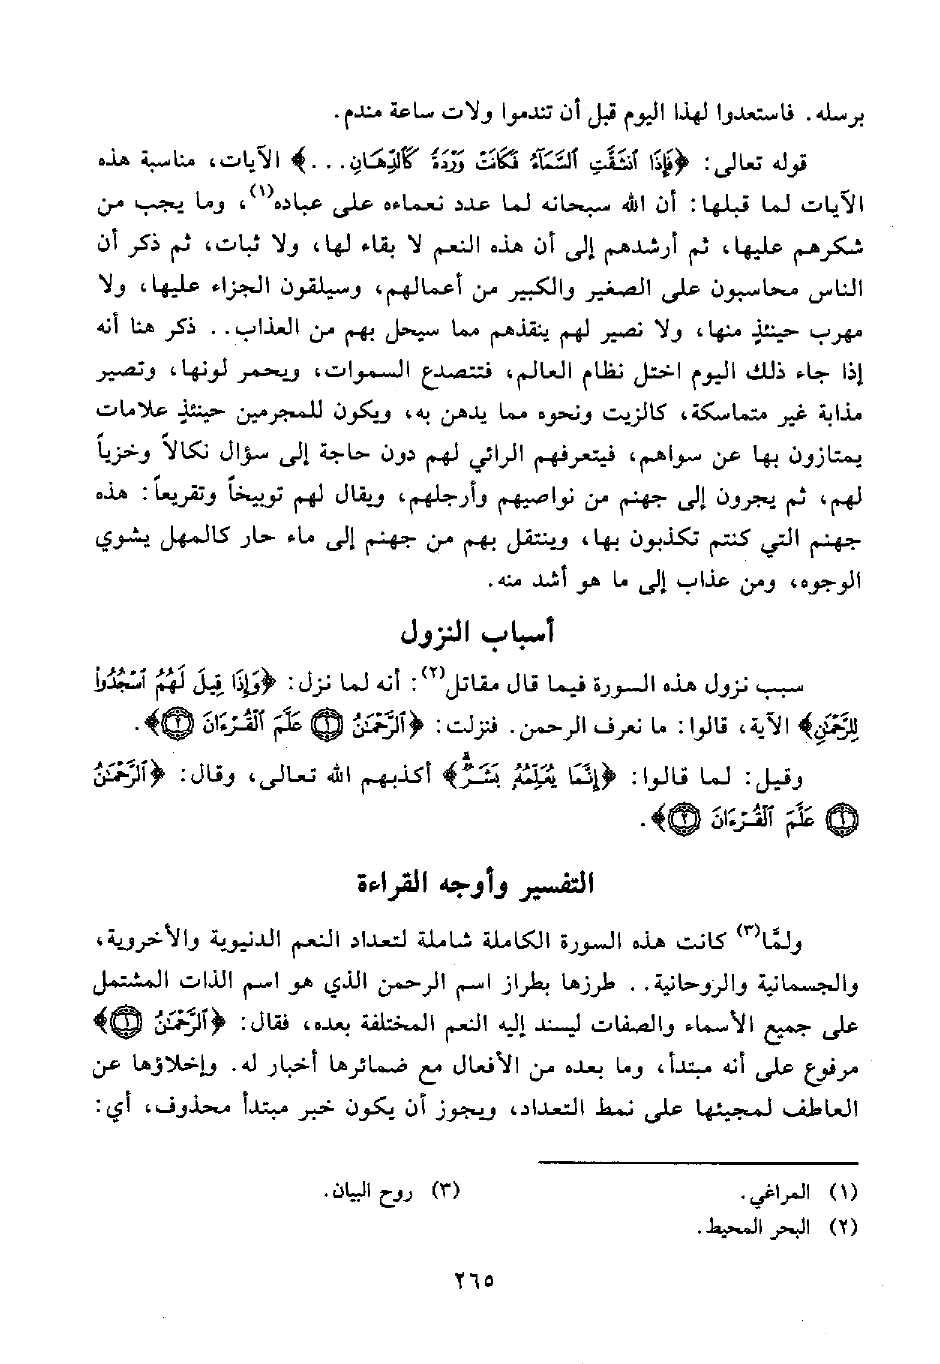 برسله. فاستعدوا لهذا اليوم قبل أن تندموا ولات ساعة مندم.
قوله تعالى: ﴿فَإِذَا ٱنشَقَّتِ ٱلسَّمَآءُ فَكَانَتْ وَرْدَةً كَٱلدِّهَانِ...﴾ الآيات، مناسبة هذه
الآيات لما قبلها: أن الله سبحانه لما عدد نعماءه على عباده(١)، وما يجب من
شكرهم عليها، ثم أرشدهم إلى أن هذه النعم لا بقاء لها، ولا ثبات، ثم ذكر أن
الناس محاسبون على الصغير والكبير من أعمالهم، وسيلقون الجزاء عليها، ولا
مهرب حينئذٍ منها، ولا نصير لهم ينقذهم مما سيحل بهم من العذاب.. ذكر هنا أنه
إذا جاء ذلك اليوم اختل نظام العالم، فتتصدع السموات، ويحمر لونها، وتصير
مذابة غير متماسكة، كالزيت ونحوه مما يدهن به، ويكون للمجرمين حينئذٍ علامات
يمتازون بها عن سواهم، فيتعرفهم الرائي لهم دون حاجة إلى سؤال نكالاً وخزياً
لهم، ثم يجرون إلى جهنم من نواصيهم وأرجلهم، ويقال لهم توبيخاً وتقريعاً: هذه
جهنم التي كنتم تكذبون بها، وينتقل بهم من جهنم إلى ماء حار كالمهل يشوي
الوجوه، ومن عذاب إلى ما هو أشد منه.
أسباب النزول
سبب نزول هذه السورة فيما قال مقاتل(٢): أنه لما نزل: ﴿وَإِذَا قِيلَ لَهُمُ ٱسْجُدُواْ
لِلرَّحْمَٰنِ﴾ الآية، قالوا: ما نعرف الرحمن. فنزلت: ﴿ٱلرَّحْمَٰنُ ١ عَلَّمَ ٱلْقُرْءَانَ ٢﴾.
وقيل: لما قالوا: ﴿إِنَّمَا يُعَلِّمُهُۥ بَشَرٌ﴾ أكذبهم الله تعالى، وقال: ﴿ٱلرَّحْمَٰنُ
١ عَلَّمَ ٱلْقُرْءَانَ ٢﴾.
التفسير وأوجه القراءة
ولمَّا(٣) كانت هذه السورة الكاملة شاملة لتعداد النعم الدنيوية والأخروية،
والجسمانية والروحانية.. طرزها بطراز اسم الرحمن الذي هو اسم الذات المشتمل
على جميع الأسماء والصفات ليسند إليه النعم المختلفة بعده، فقال: ﴿ٱلرَّحْمَٰنُ ١﴾
مرفوع على أنه مبتدأ، وما بعده من الأفعال مع ضمائرها أخبار له. وإخلاؤها عن
العاطف لمجيئها على نمط التعداد، ويجوز أن يكون خبر مبتدأ محذوف، أي:
(١) المراغي.
(٢) البحر المحيط.
(٣) روح البيان.
٢٦٥